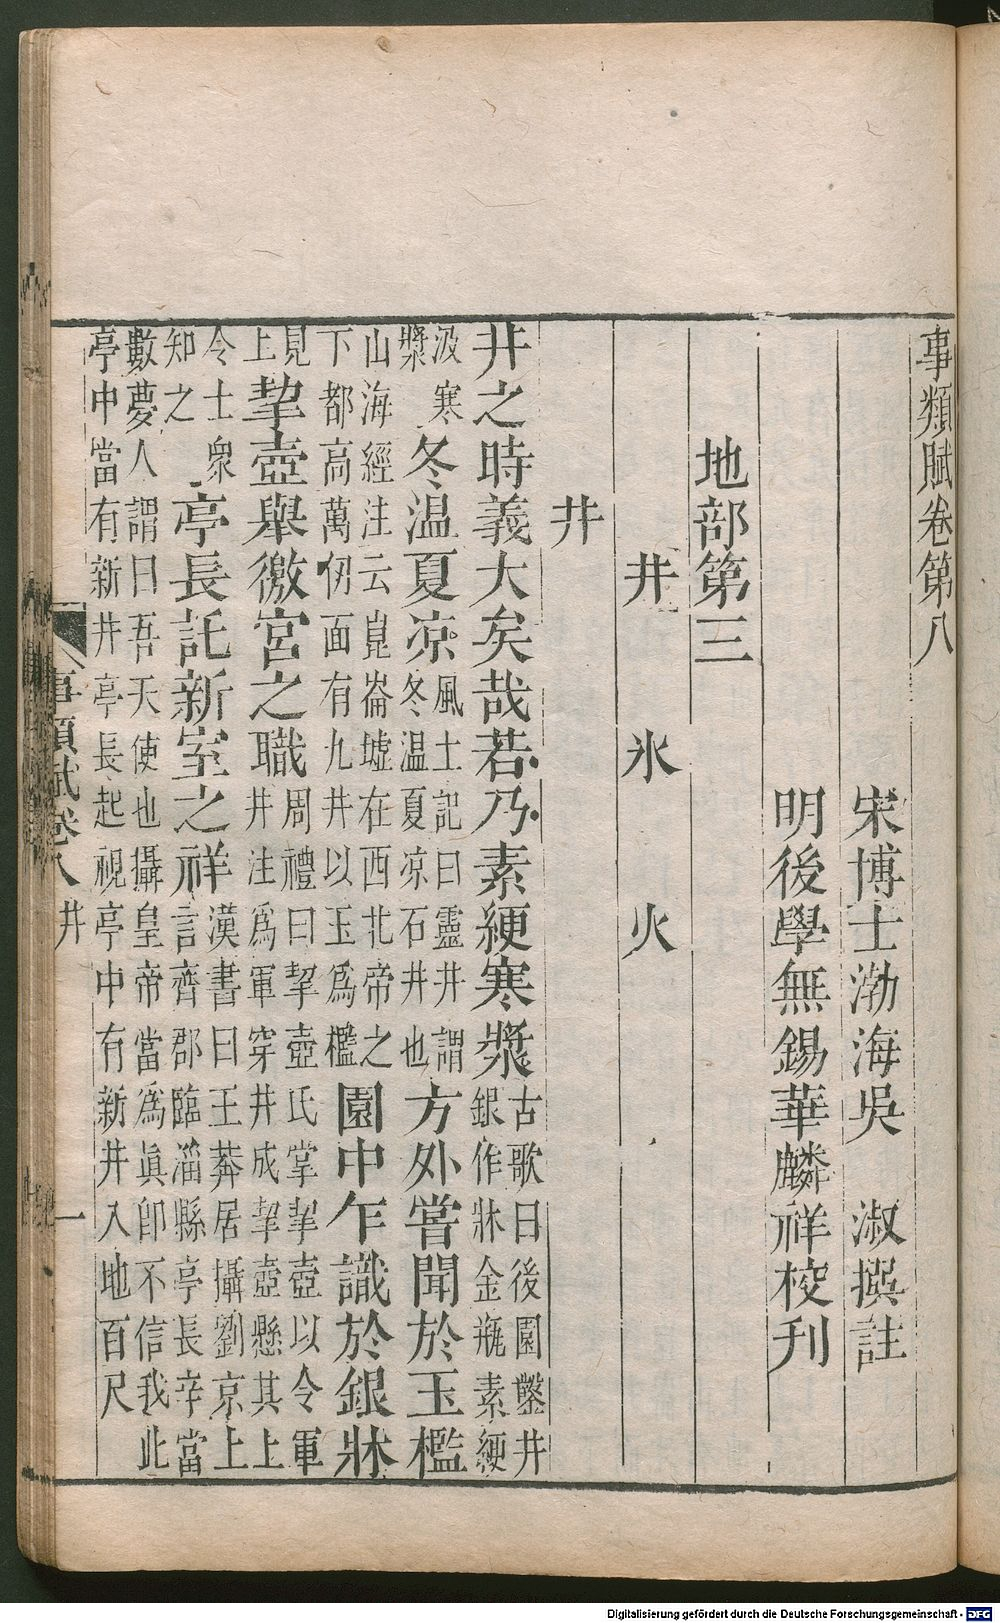 事類賦卷第八
宋博士渤海吳　淑撰註
明後學無錫華麟祥校刊
地部第三
井　氷　火
井
井之時義大矣哉若乃素綆寒漿古歌曰後園鑿井銀作牀金瓶素綆
汲寒漿冬温夏凉風土記曰靈井謂冬温夏凉石井也方外嘗聞於玉檻
山海經注云崑崙墟在西北帝之下都高萬仞面有九井以玉爲檻園中乍識於銀牀
見上挈壺舉徼宮之職周禮曰挈壺氏掌挈壺以令軍井注爲軍穿井成挈壺懸其上
令士衆知之亭長託新室之祥漢書曰王莽居攝劉京上言齊郡臨淄縣亭長辛當
數夢人謂曰吾天使也攝皇帝當爲眞卽不信我此亭中當有新井亭長起視亭中有新井入地百尺
事類賦卷八　井　一
Digitalisierung gefördert durch die Deutsche Forschungsgemeinschaft - DFG